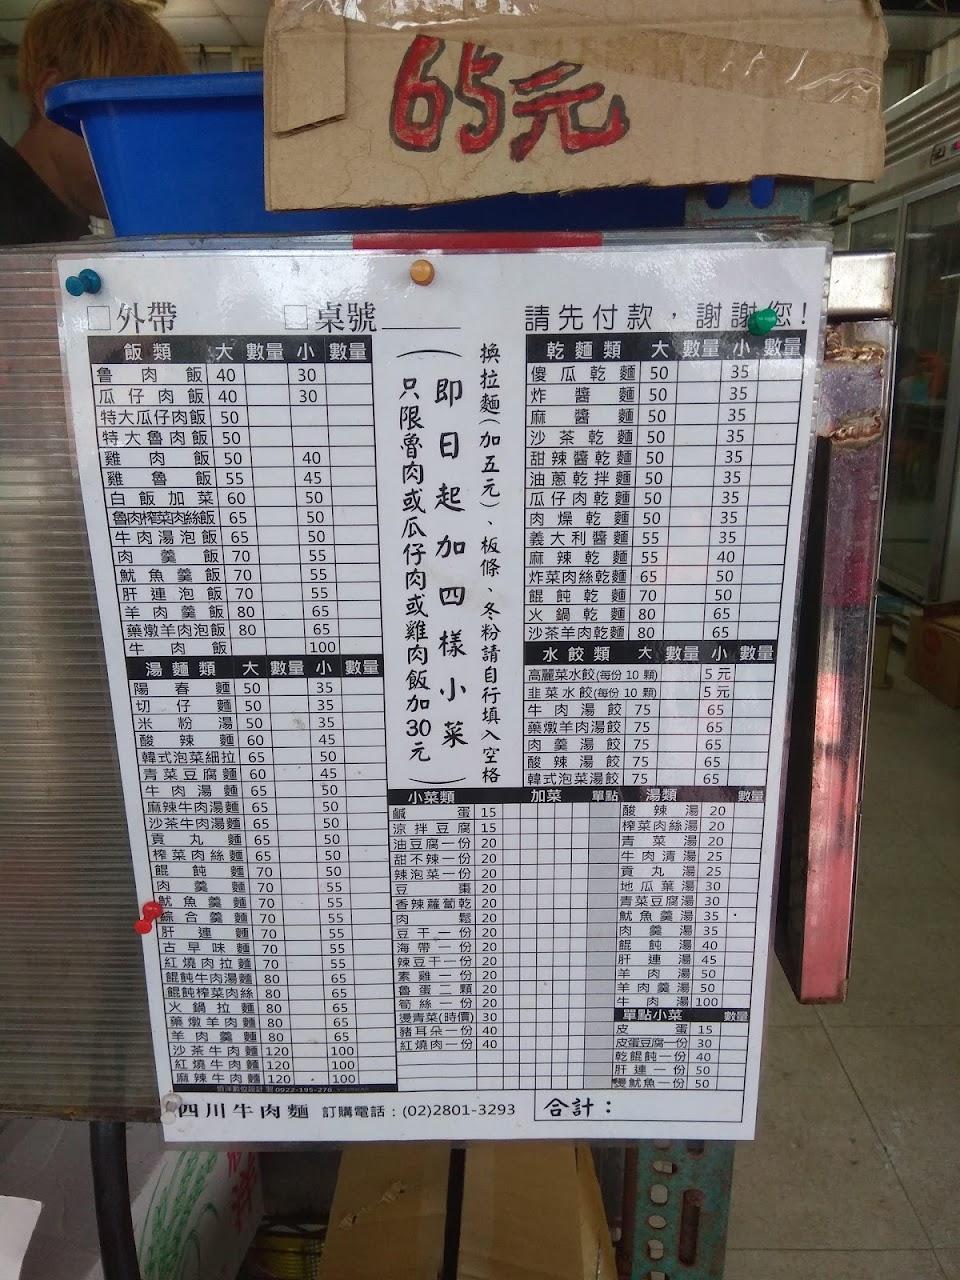 65元
外帶 桌號 請先付款，謝謝您!
飯類 大 數量 小 數量
魯肉飯 40 30
瓜仔肉飯 40 30
特大瓜仔肉飯 50
特大魯肉飯 50
雞肉飯 50 40
雞魯飯 55 45
白飯加菜 60 50
魯肉榨菜肉絲飯 65 50
牛肉湯泡飯 65 50
肉羹飯 70 55
魷魚羹飯 70 55
肝連泡飯 70 55
羊肉羹飯 80 65
藥燉羊肉泡飯 80 65
牛肉飯 100
湯麵類 大 數量 小 數量
陽春麵 50 35
切仔麵 50 35
米粉湯 50 35
酸辣麵 60 45
韓式泡菜細拉 65 50
青菜豆腐麵 60 45
牛肉湯麵 65 50
麻辣牛肉湯麵 65 50
沙茶牛肉湯麵 65 50
貢丸麵 65 50
榨菜肉絲麵 65 50
餛飩麵 70 50
肉羹麵 70 55
魷魚羹麵 70 55
綜合羹麵 70 55
肝連麵 70 55
古早味麵 70 55
紅燒肉拉麵 70 55
餛飩牛肉湯麵 80 65
餛飩榨菜肉絲 80 65
火鍋拉麵 80 65
藥燉羊肉麵 80 65
羊肉羹麵 80 65
沙茶牛肉麵 120 100
紅燒牛肉麵 120 100
麻辣牛肉麵 120 100
換拉麵(加五元)、板條、冬粉請自行填入空格
即日起加四樣小菜
(只限魯肉或瓜仔肉或雞肉飯加30元)
乾麵類 大 數量 小 數量
傻瓜乾麵 50 35
炸醬麵 50 35
麻醬麵 50 35
沙茶乾麵 50 35
甜辣醬乾麵 50 35
油蔥乾拌麵 50 35
瓜仔肉乾麵 50 35
肉燥乾麵 50 35
義大利醬麵 55 35
麻辣乾麵 55 40
炸菜肉絲乾麵 65 50
餛飩乾麵 70 50
火鍋乾麵 80 65
沙茶羊肉乾麵 80 65
水餃類 大 數量 小 數量
高麗菜水餃(每份10顆) 5元
韭菜水餃(每份10顆) 5元
牛肉湯餃 75 65
藥燉羊肉湯餃 75 65
肉羹湯餃 75 65
酸辣湯餃 75 65
韓式泡菜湯餃 75 65
小菜類 加菜 單點
鹹蛋 15
涼拌豆腐 15
油豆腐一份 20
甜不辣一份 20
辣泡菜一份 20
豆棗 20
香辣蘿蔔乾 20
肉鬆 20
豆干一份 20
海帶一份 20
辣豆干一份 20
素雞一份 20
魯蛋二顆 20
筍絲一份 20
燙青菜(時價) 30
豬耳朵一份 40
紅燒肉一份 40
湯類 數量
酸辣湯 20
榨菜肉絲湯 20
青菜湯 20
牛肉清湯 25
貢丸湯 25
地瓜葉湯 30
青菜豆腐湯 30
魷魚羹湯 35
肉羹湯 35
餛飩湯 40
肝連湯 45
羊肉湯 50
羊肉羹湯 50
牛肉湯 100
單點小菜 數量
皮蛋 15
皮蛋豆腐一份 30
乾餛飩一份 40
肝連一份 50
燙魷魚一份 50
0922-195-276
四川牛肉麵 訂購電話：(02)2801-3293 合計：